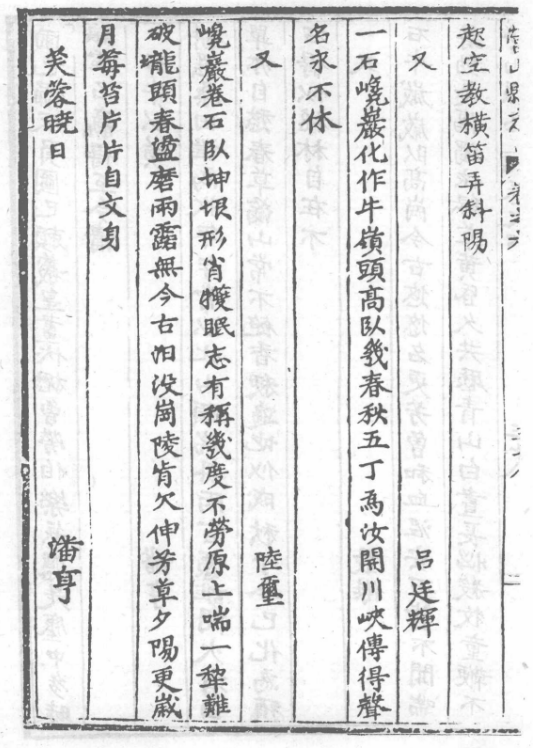 起空教橫笛弄斜陽
又 呂廷輝
一石巉巖化作牛嶺頭高臥幾春秋五丁為汝開川峽傳得聲
名永不休
又 陸璽
巉巖卷石臥坤垠形肖犧眠志有稱幾度不勞原上喘一犂難
破壠頭春盤磨雨露無今古汨没崗陵肯欠伸芳草夕陽更歲
月莓苔片片自文身
芙蓉曉日 潘亨